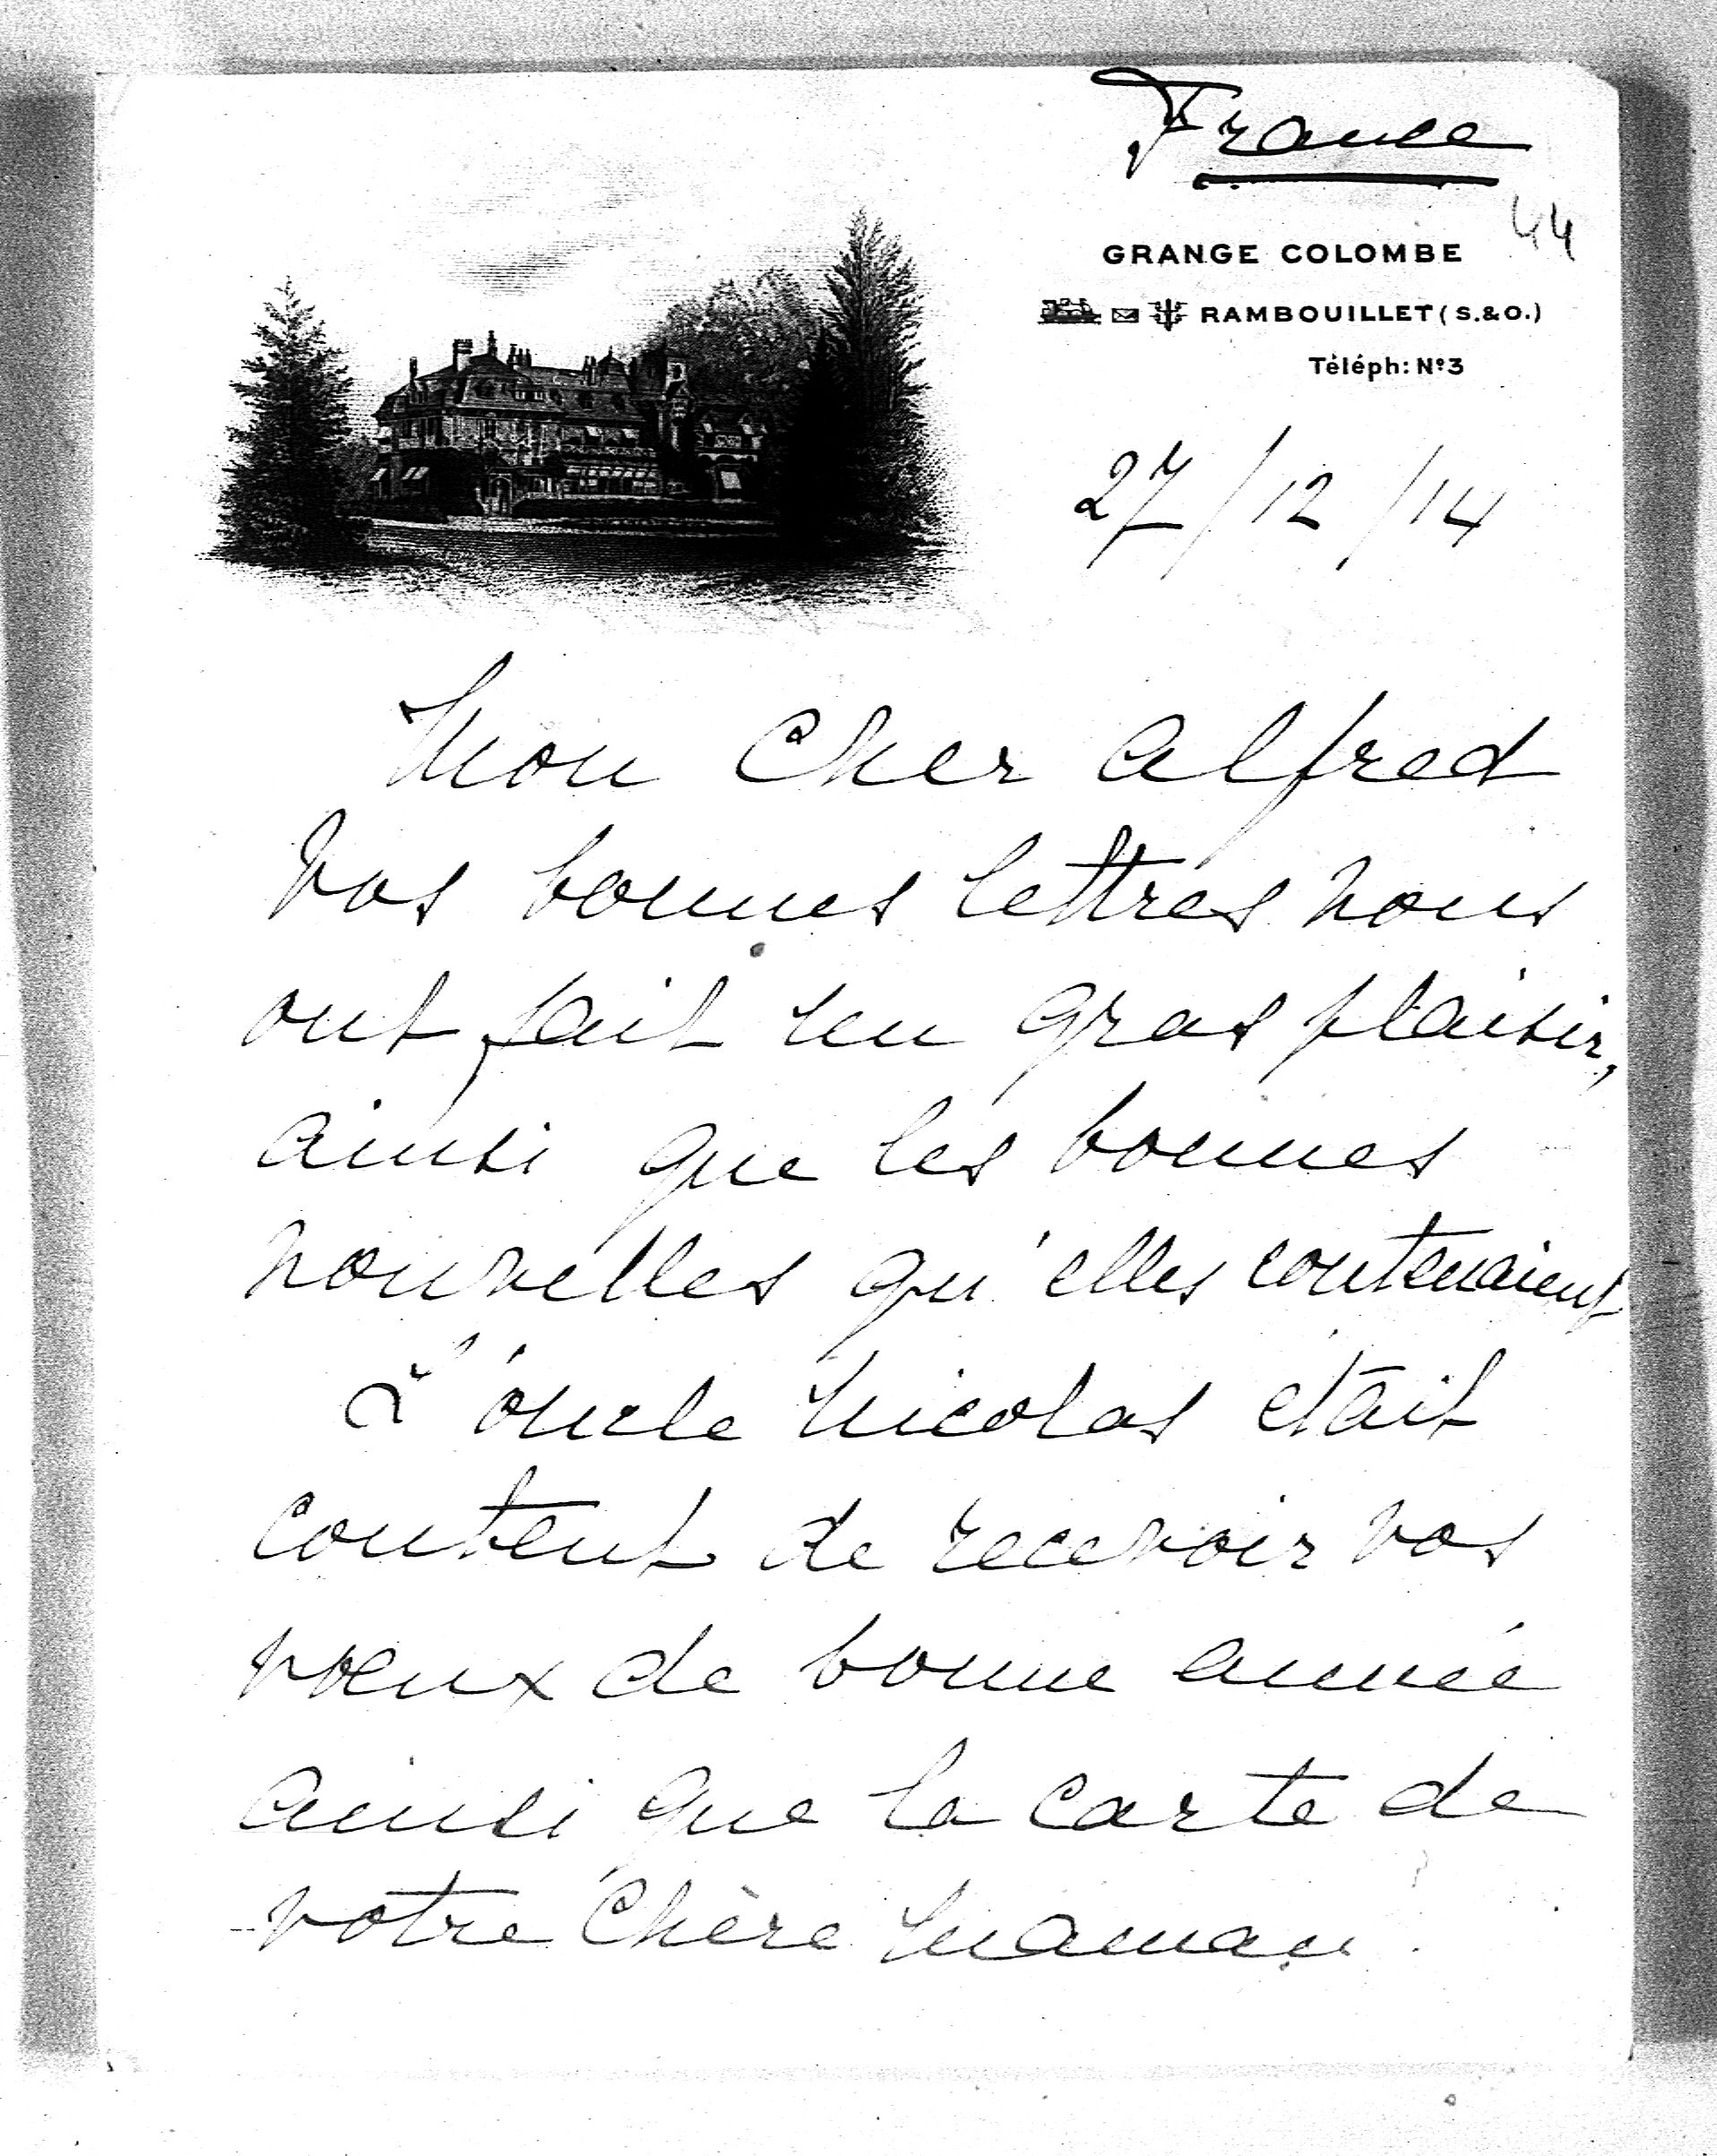 France
44
GRANGE COLOMBE
RAMBOUILLET (S.&O.)
Téléph: Nº3
27/12/14
Mon Cher Alfred
Vos bonnes lettres nous
ont fait un gras plaisir,
ainsi que les bonnes
nouvelles qu'elles contenaient
L'oncle Nicolas était
content de recevoir vos
vœux de bonne année
ainsi que la carte de
votre Chère Maman.